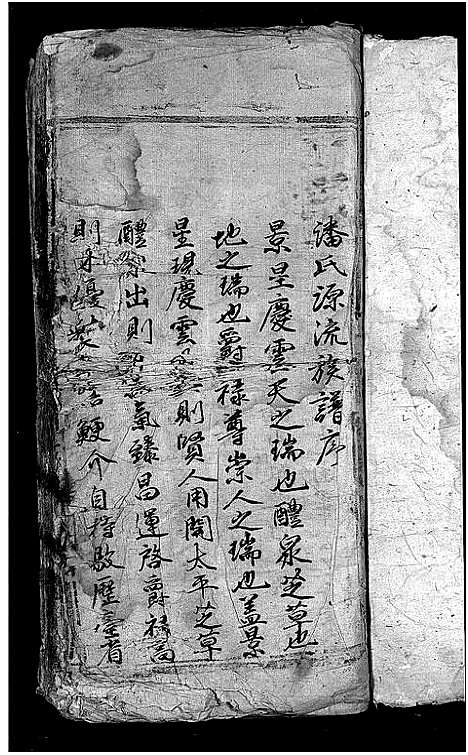 潘氏源流族譜序
景星慶雲天之瑞也醴泉芝草也
地之瑞也爵祿尊崇人之瑞也盖景
星現慶雲則賢人用開太平芝草
醴泉出則氣錄昌運啓爵祿富
則鯁介自持敭歷臺省